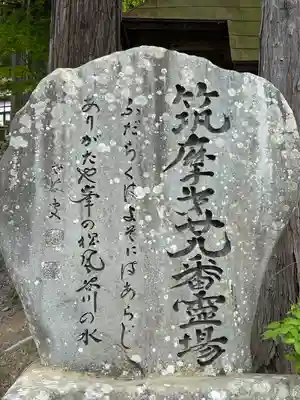 筑摩才廿八番霊場
ふだらくはよそにはあらじ
ありがたや峯の松風谷川の水